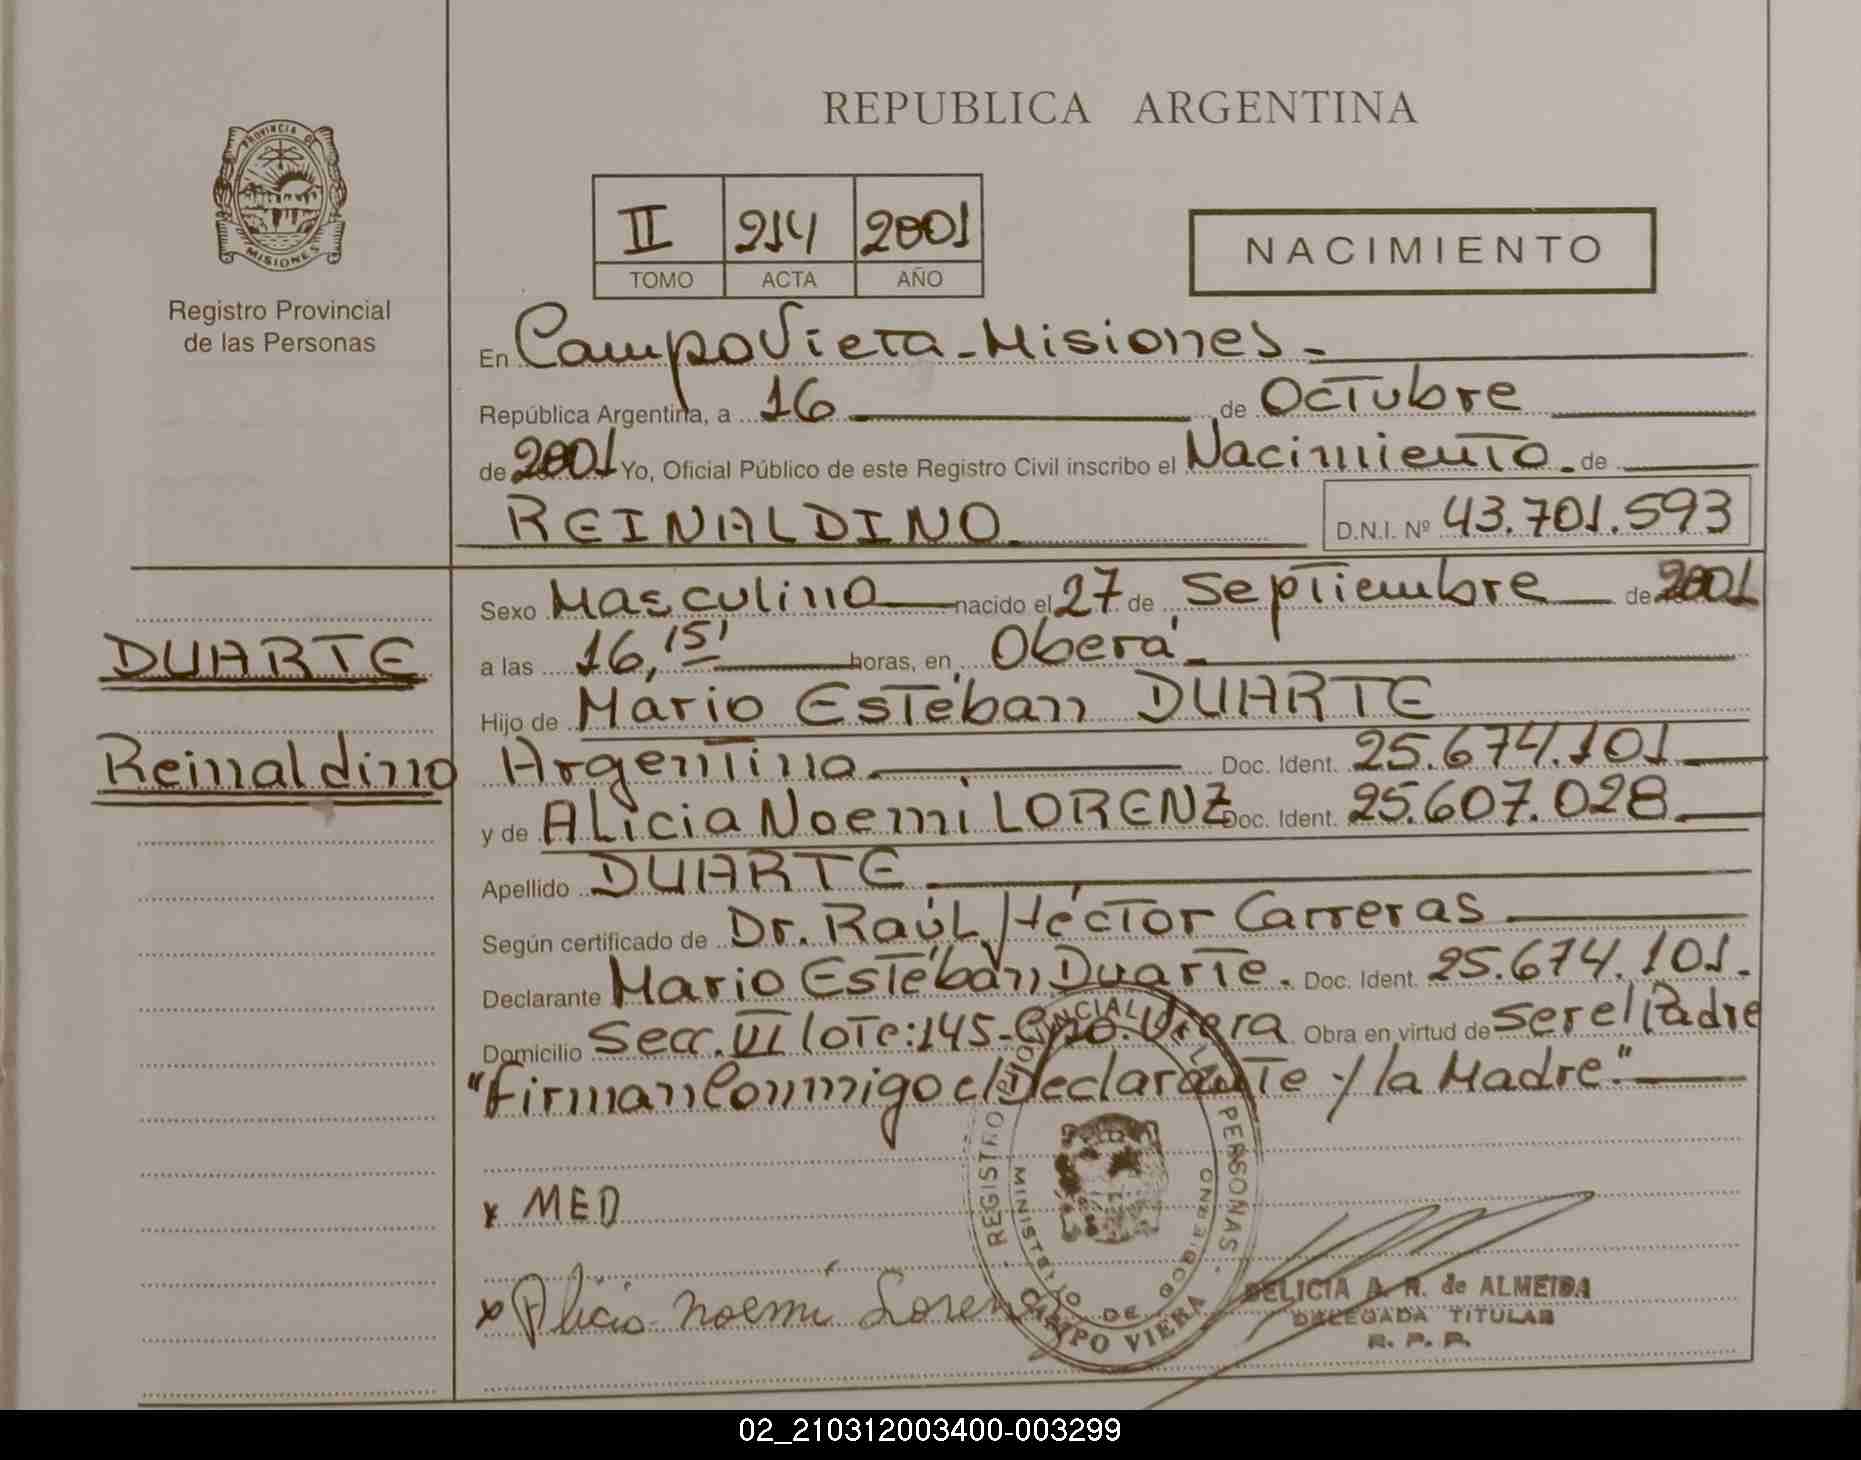 PROVINCIA DE
MISIONES
Registro Provincial
de las Personas
REPUBLICA ARGENTINA
II 214 2001
TOMO ACTA AÑO
NACIMIENTO
En Campo Viera - Misiones -
República Argentina, a 16 de Octubre
de 2001 Yo, Oficial Público de este Registro Civil inscribo el Nacimiento. de
REINALDINO. D.N.I. Nº 43.701.593
DUARTE
Reinaldino
Sexo Masculino nacido el 27 de Septiembre de 2001
a las 16,15' horas, en Oberá -
Hijo de Mario Estéban DUARTE
Argentino Doc. Ident. 25.674.101
y de Alicia Noemi LORENZ Doc. Ident. 25.607.028
Apellido DUARTE
Según certificado de Dr. Raúl Héctor Carreras
Declarante Mario Estéban Duarte. Doc. Ident. 25.674.101.
Domicilio Secc. VI lote: 145 - Cpo. Viera Obra en virtud de ser el Padre
"Firman Conmigo el Declarante y la Madre."
x MED
x Alicia Noemi Lorenz
REGISTRO PROVINCIAL DE LAS PERSONAS
MINISTERIO DE GOBIERNO
CAMPO VIERA
DELICIA A. R. de ALMEIDA
DELEGADA TITULAR
R. P. P.
02_210312003400-003299